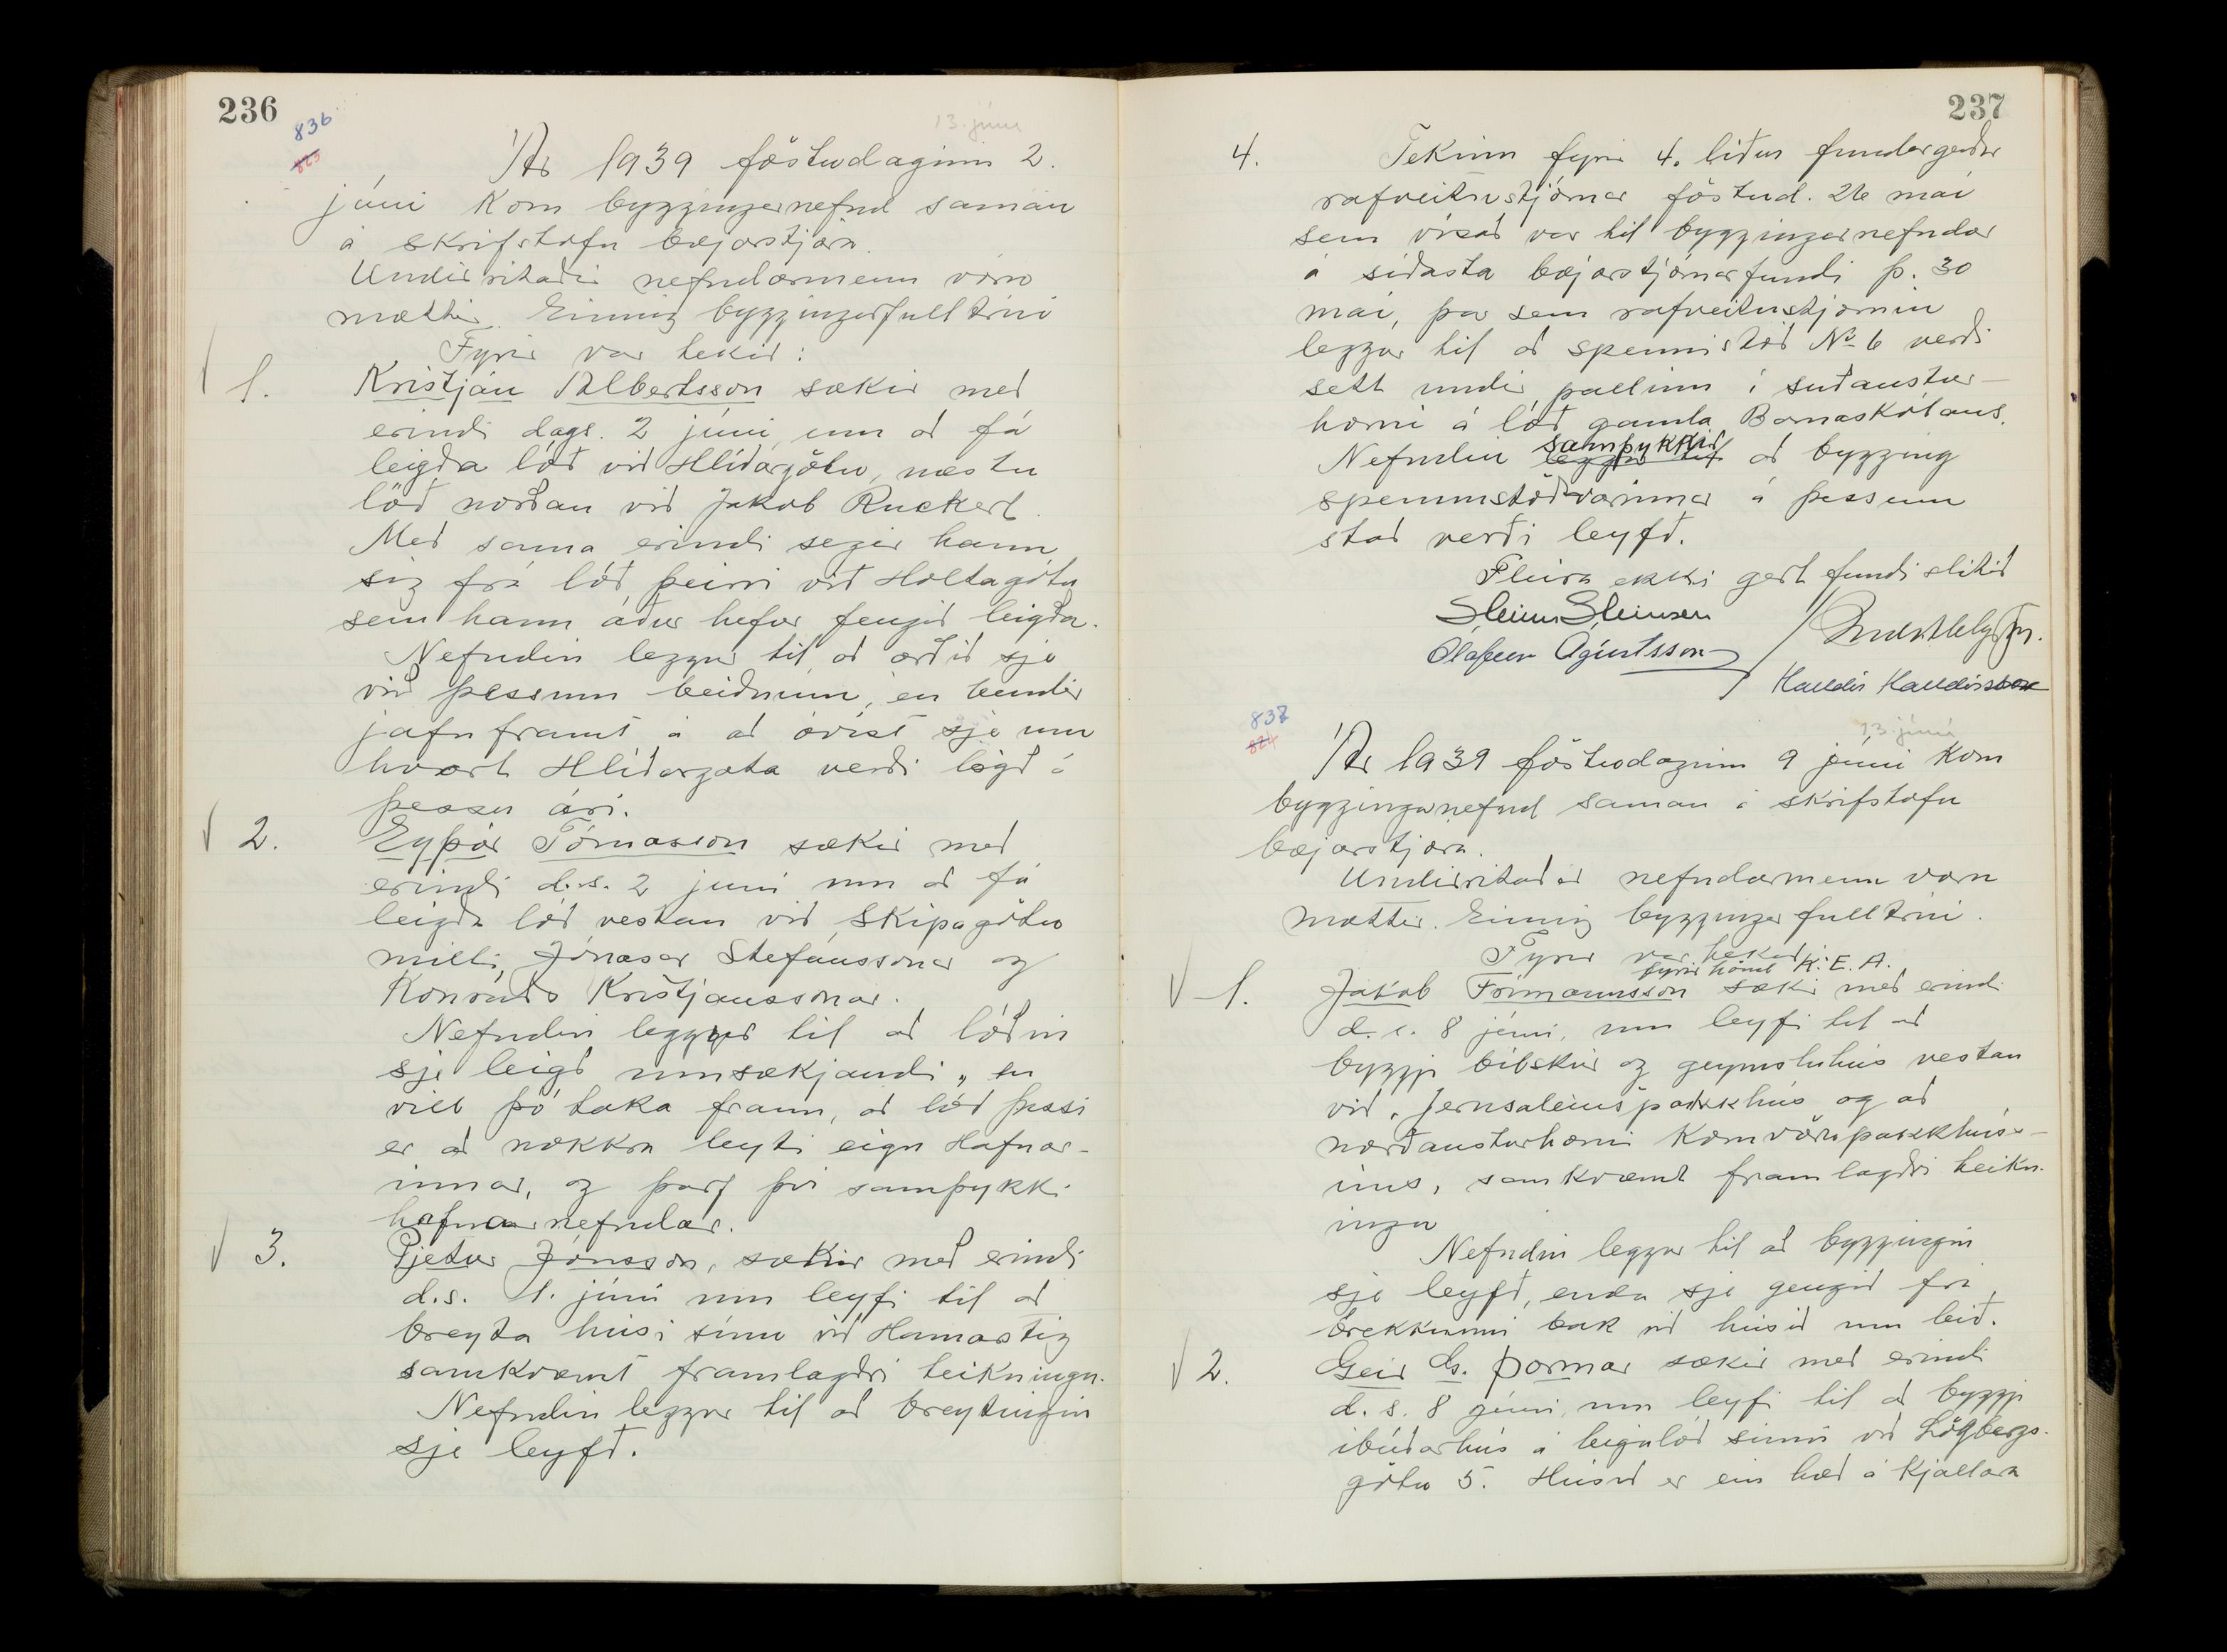 236
836
823
13. júní
Ár 1939 föstudaginn 2.
júní kom byggingarnefnd saman
á skrifstofu bæjarstjóra.
Undirritaðir nefndarmenn vóru
mættir. Einnig byggingarfulltrúi
Fyrir var tekið:
1. Kristján Albertsson sækir með
erindi dags. 2 júní, um að fá
leigða lóð við Hlíðargötu, næstu
lóð norðan við Jakob Ruckert.
Með sama erindi segir hann
sig frá lóð þeirri við Holtagötu
sem hann áður hefur fengið leigða.
Nefndin leggur til að orðið sje
við þessum beiðnum, en bendir
jafnframt á að óvíst sje um
hvort Hlíðargata verði lögð á
þessu ári.
2. Eyþór Tómasson sækir með
erindi d.s. 2 júní um að fá
leigða lóð vestan við Skipagötu
milli Jónasar Stefánssonar og
Konráðs Kristjánssonar.
Nefndin leggur til að lóðin
sje leigð umsækjandi, en
vill þó taka fram, að lóð þessi
er að nokkru leyti eign Hafnar-
innar, og þarf því samþykki
hafnarnefndar.
3. Pjetur Jónsson, sækir með erindi
d.s. 1. júní um leyfi til að
breyta húsi sínu við Hamarstig
samkvæmt framlagðri teikningu.
Nefndin leggur til að breytingin
sje leyfð.
237
4. Tekinn fyrir 4. liður fundargerðar
rafveitustjórnar föstud. 26 maí
sem vísað var til byggingarnefndar
á síðasta bæjarstjórnarfundi þ. 30
maí, þar sem rafveitustjórnin
leggur til að spennistöð No 6 verði
sett undir pallinn í suðaustur-
horni á lóð gamla Barnaskólans.
samþykkir
Nefndin leggur til að bygging
spennustöðvarinnar á þessum
stað verði leyfð.
Fleira ekki gert fundi slitið
Steinn Steinsen
Ólafur Ágústsson
Halldór Halldórsson
837
824
13. júní
Ár 1939 föstudaginn 9 júní kom
byggingarnefnd saman á skrifstofu
bæjarstjóra.
Undirritaðir nefndarmenn voru
mættir. Einnig byggingarfulltrúi.
Fyrir var tekið:
fyrir hönd K.E.A.
1. Jakob Frímannsson sækir með erindi
d.s. 8 júní, um leyfi til að
byggja bílskúr og geymsluhús vestan
við Jerúsalemspakkhús og að
norðausturhorni Kornvörupakkhúss-
ins, samkvæmt framlagðri teikn-
ingu
Nefndin leggur til að byggingin
sje leyfð, enda sje gengið frá
brekkunni bak við húsið um leið.
2. Geir G. Þormar sækir með erindi
d.s. 8 júní, um leyfi til að byggja
íbúðarhús á leigulóð sinni við Lögbergs-
götu 5. Húsið er ein hæð á kjallara